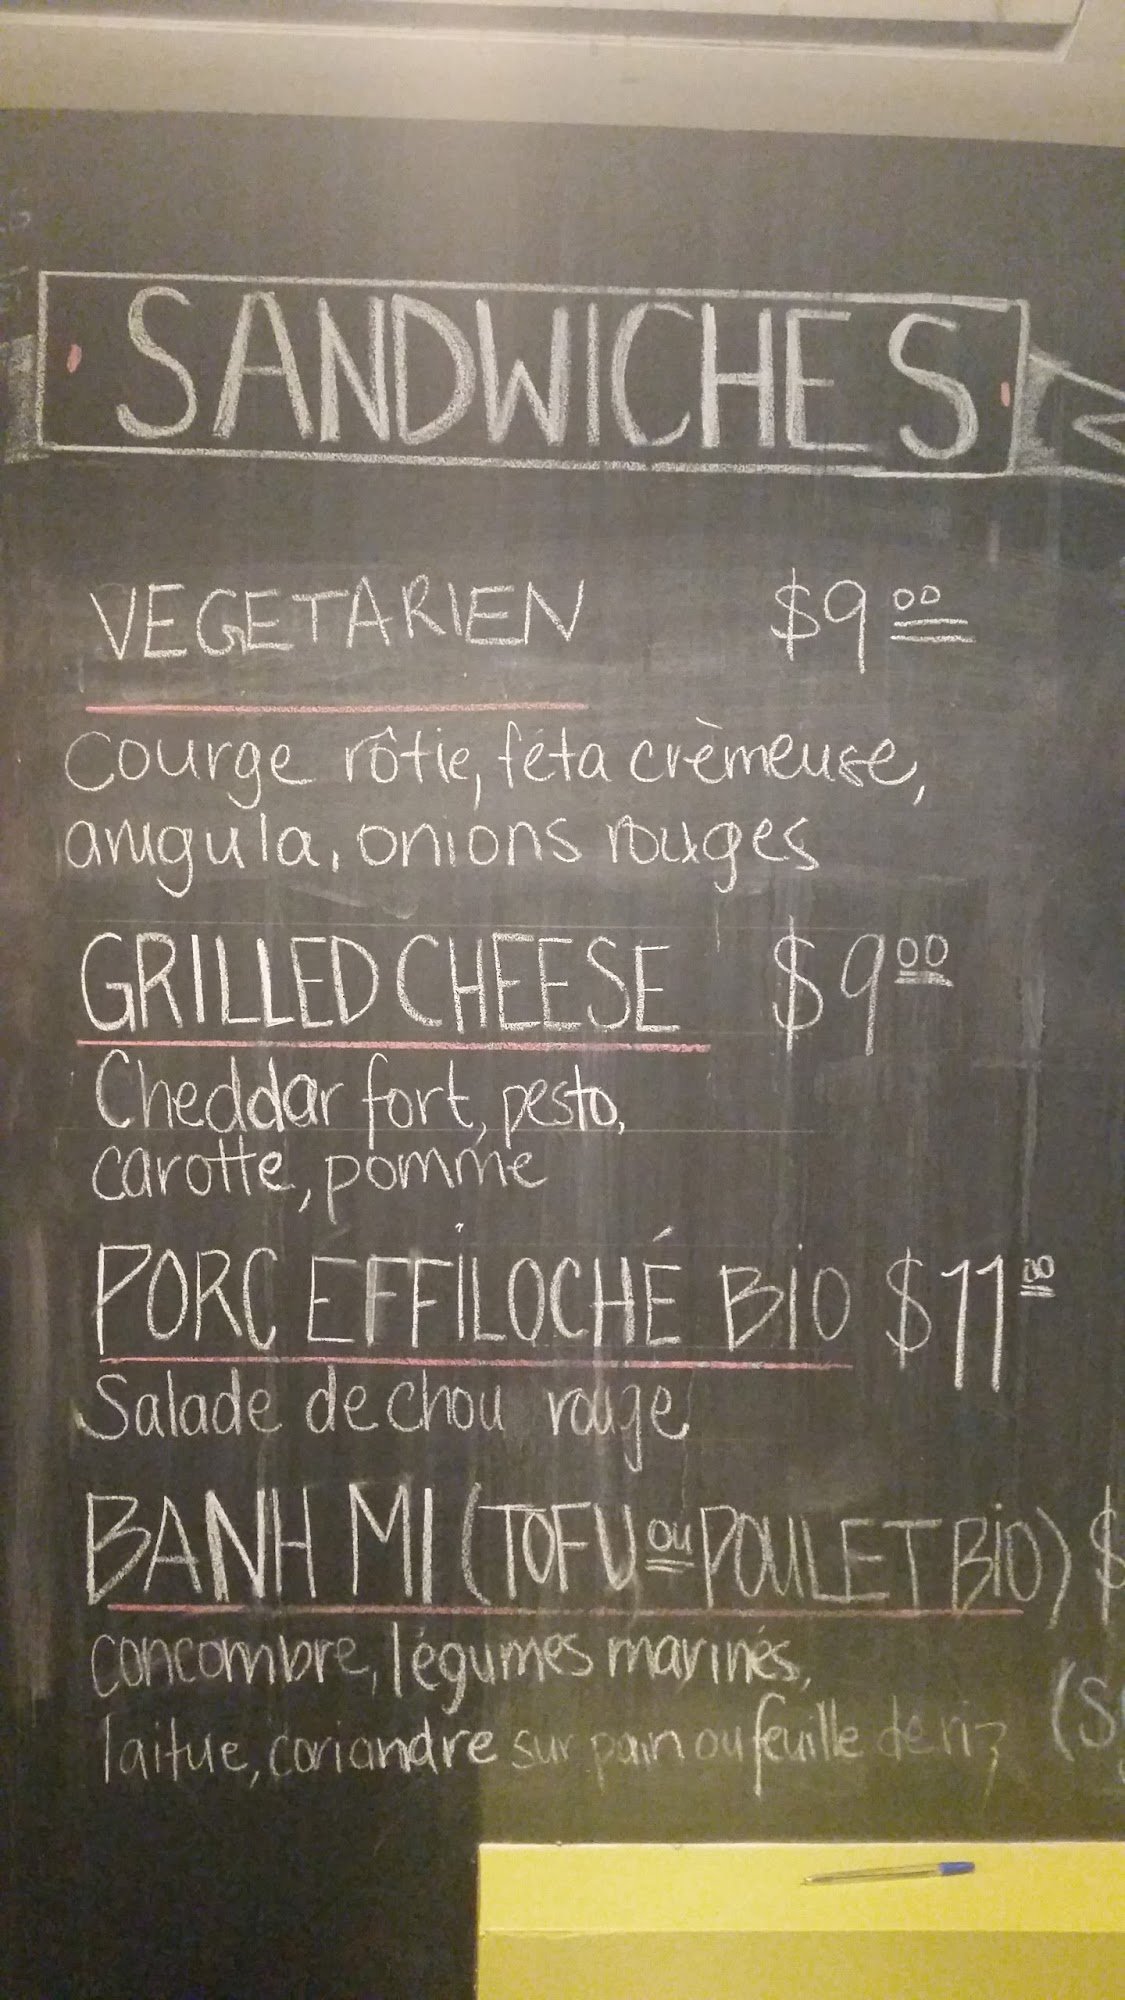 SANDWICHES
VEGETARIEN $9.00
Courge rôtie, féta crèmeuse,
arugula, onions rouges
GRILLED CHEESE $9.00
Cheddar fort, pesto,
carotte, pomme
PORC ÉFFILOCHÉ BIO $11.00
Salade de chou rouge
BANH MI (TOFU ou POULET BIO) $
concombre, légumes marinés,
laitue, coriandre sur pain ou feuille de riz